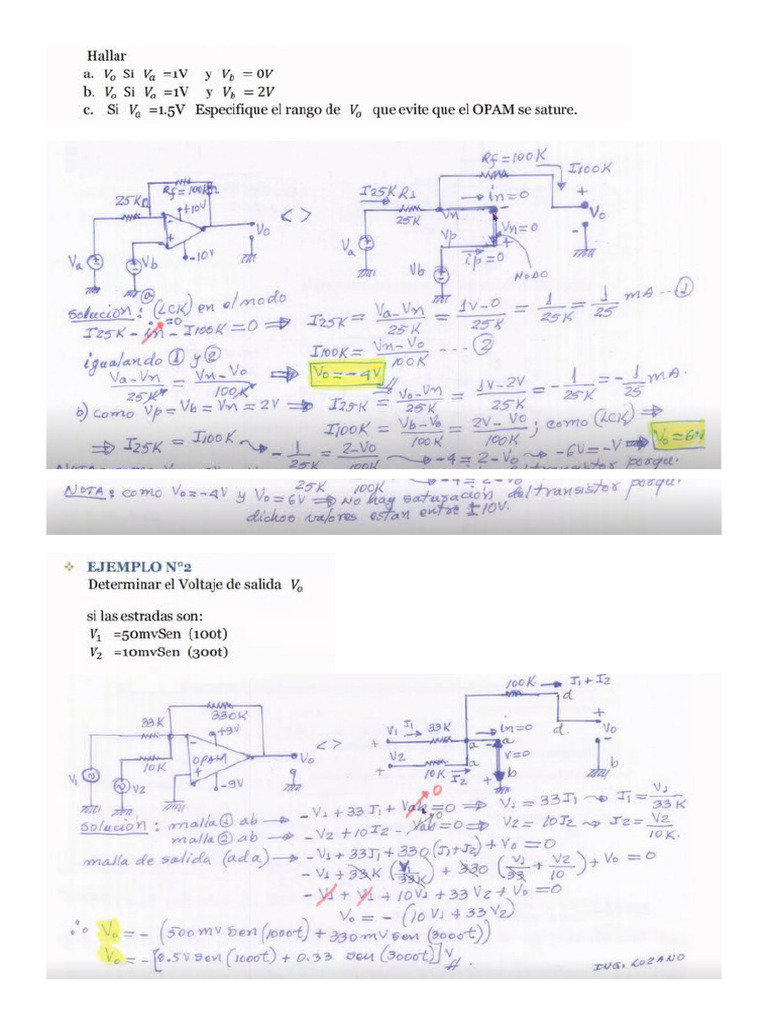 Hallar
a. Vo Si Va =1V y Vb = 0V
b. Vo Si Va =1V y Vb = 2V
c. Si Va =1.5V Especifique el rango de Vo que evite que el OPAM se sature.
Rf=100K I100K
25K Rf=100K +10V Vo Va Vb -10V
< >
I25K R1 25K Vn in=0 Vn=0 Vp ip=0 NODO Va Vb + Vo -
Solución: (LCK) en el nodo
I25K - in - I100K = 0 ⇒ I25K = Va-Vn/25K = 1V-0/25K = 1/25K = 1/25 mA -- ①
=0
I100K = Vn-Vo/100K --- ②
igualando ① y ②
Va-Vn/25K = Vn-Vo/100K ⇒ Vo = -4V
b) como Vp = Vb = Vn = 2V ⇒ I25K = Va-Vn/25K = 1V-2V/25K = -1/25K = -1/25 mA.
I100K = Vb-Vo/100K = 2V-Vo/100K ; como (LCK) ⇒
⇒ I25K = I100K -1/25K = 2-Vo/100K -4 = 2-Vo -6V = -V ⇒ Vo = 6V
25K 100K
NOTA: como Vo=-4V y Vo=6V ⇒ No hay saturación del transistor porque.
dichos valores estan entre ±10V.
❖ EJEMPLO N°2
Determinar el Voltaje de salida Vo
si las estradas son:
V1 =50mvSen (100t)
V2 =10mvSen (300t)
100K I1+I2
33K 330K +9V OPAM 10K -9V V1 V2 Vo
< >
V1 I1 33K in=0 d. d. + Vo - V2 10K I2 a a a V=0 b b
Solución: malla ① ab → -V1 + 33I1 + Vab = 0 ⇒ V1 = 33I1 I1 = V1/33K
0
malla ② ab → -V2 + 10I2 - Vab = 0 ⇒ V2 = 10I2 I2 = V2/10K.
0
malla de salida (ada) → -V1 + 33I1 + 330 (I1+I2) + Vo = 0
-V1 + 33K (V1/33K) + 330 (V1/33 + V2/10) + Vo = 0
-V1 + V1 + 10V1 + 33V2 + Vo = 0
Vo = - (10V1 + 33V2)
∴ Vo = - (500mV sen(1000t) + 330mV sen(3000t))
Vo = - [0.5V sen(1000t) + 0.33 sen(3000t)] V
ING. LOZANO